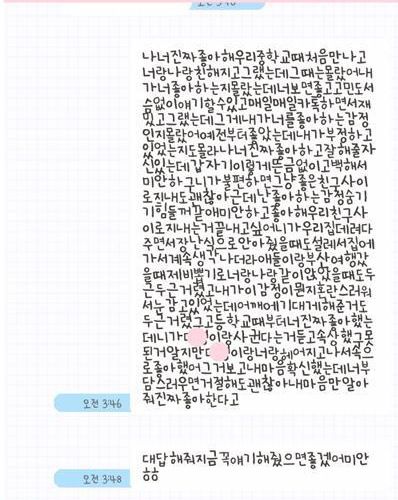 나너진짜좋아해우리중학교때처음만나고
너랑나랑친해지고그랬는데그때는몰랐어내
가너좋아하는지몰랐는데너보면좋고고민도서
슴없이얘기할수있고매일매일카톡하면서재
밌고그랬는데그게내가너를좋아하는감정
인지몰랐어예전부터좋았는데내가부정하고
있었는지도몰라나너진짜좋아하고잘해줄자
신있는데갑자기이렇게뜬금없이고백해서
미안하구니가불편하면그냥좋은친구사이
로지내도괜찮아근데난좋아하는감정숨기
기힘들꺼같애미안하고좋아해우리친구사
이로지내는거끝내고싶어니가우리집데려다
주면서장난식으로안아줬을때도설레서집에
가서계속생각나더라애들이랑부산여행갔
을때제비뽑기로너랑나랑같이앉았을때도두
근두근거렸고내가이감정이뭔지혼란스러워
서눈감고있었는데어깨에기대게해준거도
두근거렸고고등학교때부터너진짜좋아했는
데니가 이랑사귄다는거듣고속상했고못
된거알지만 이랑너랑헤어지고나서속으
로좋아했어그거보고내마음확신했는데너부
담스러우면거절해도괜찮아내마음만알아
줘진짜좋아한다고
오전 3:46
대답해줘지금꼭얘기해줬으면좋겠어미안
ㅎㅎ
오전 3:48